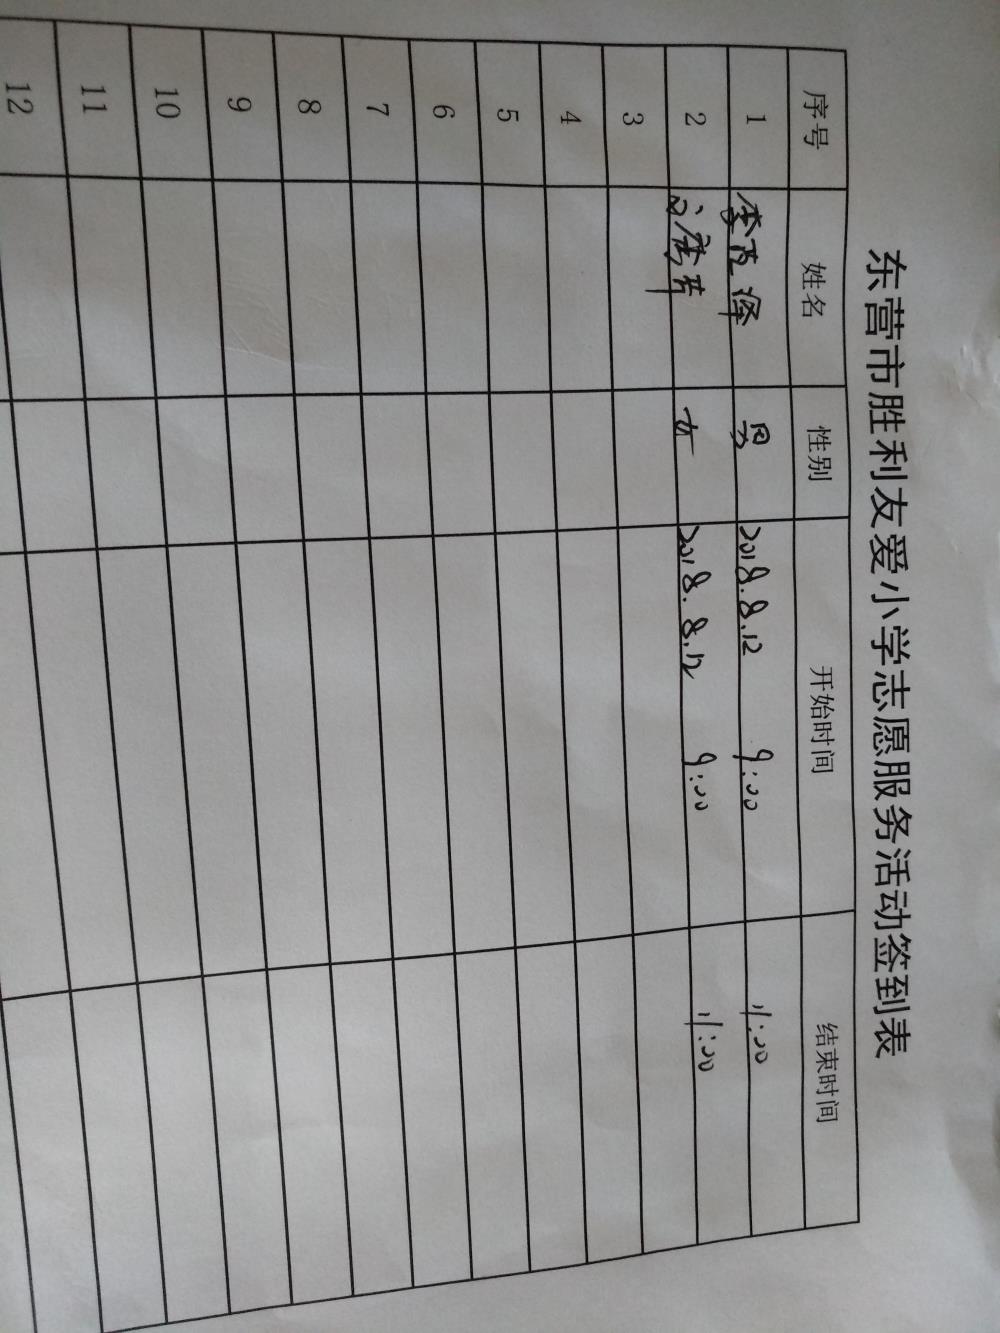 东营市胜利友爱小学志愿服务活动签到表
序号 姓名 性别 开始时间 结束时间
1 李 泽 男 2018.8.12 9:00 11:00
2 女 2018.8.12 9:00 11:00
3
4
5
6
7
8
9
10
11
12